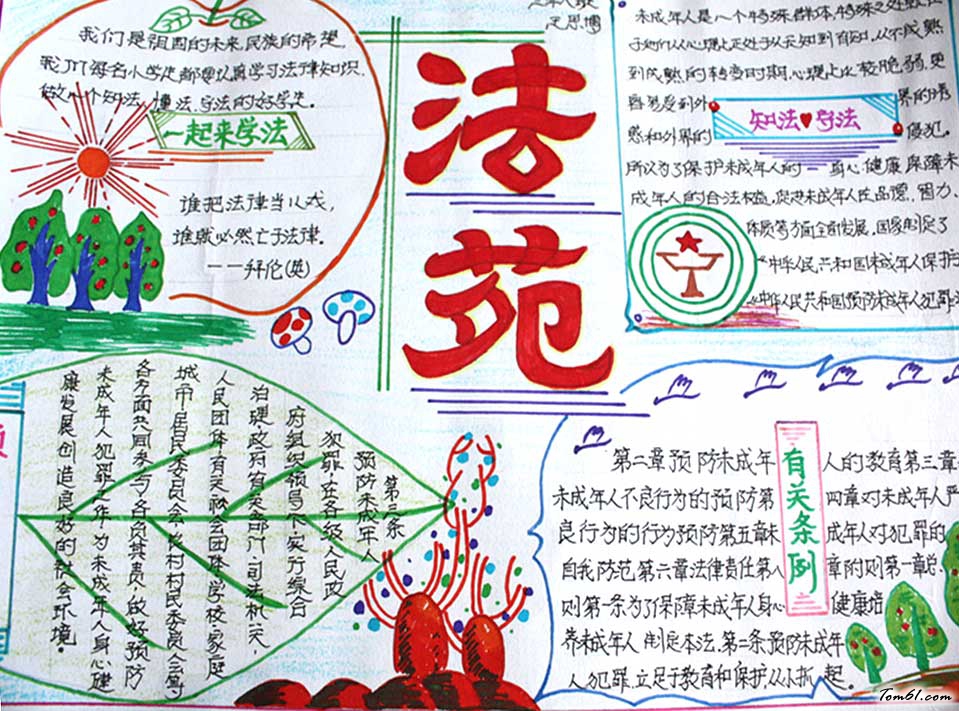 法苑
我们是祖国的未来,民族的希望,
我们每名小学生都要认真学习法律知识,
做一个知法、懂法、守法的好学生。
一起来学法
谁把法律当儿戏,
谁就必然亡于法律。
——拜伦(英)
未成年人是一个特殊群体,特殊之处就在
于他们从心理上正处于从无知到有知,从不成熟
到成熟的转变时期,心理上比较脆弱,更
容易受到外界的诱
惑和外界的侵犯。
知法守法
所以为了保护未成年人的身心健康,保障未
成年人的合法权益,促进未成年人在品德、智力、
体质等方面全面发展,国家制定了
《中华人民共和国未成年人保护
《中华人民共和国预防未成年人犯罪
第三条
预防未成年人
犯罪,在各级人民政
府组织领导下,实行综合
治理,政府有关部门、司法机关、
人民团体、有关社会团体、学校、家庭
城市居民委员会、农村村民委员会等
各方面共同参与,各负其责,做好预防
未成年人犯罪工作,为未成年人身心健
康发展创造良好的社会环境。
有关条例
第二章预防未成年人的教育第三章
未成年人不良行为的预防第四章对未成年严
良行为的行为预防第五章未成年人对犯罪的
自我防范第六章法律责任第八章附则第一章总
则第一条为了保障未成年人身心健康培
养未成年人制定本法。第二条预防未成年
人犯罪,立足于教育和保护,从小抓起。
Tom61.com